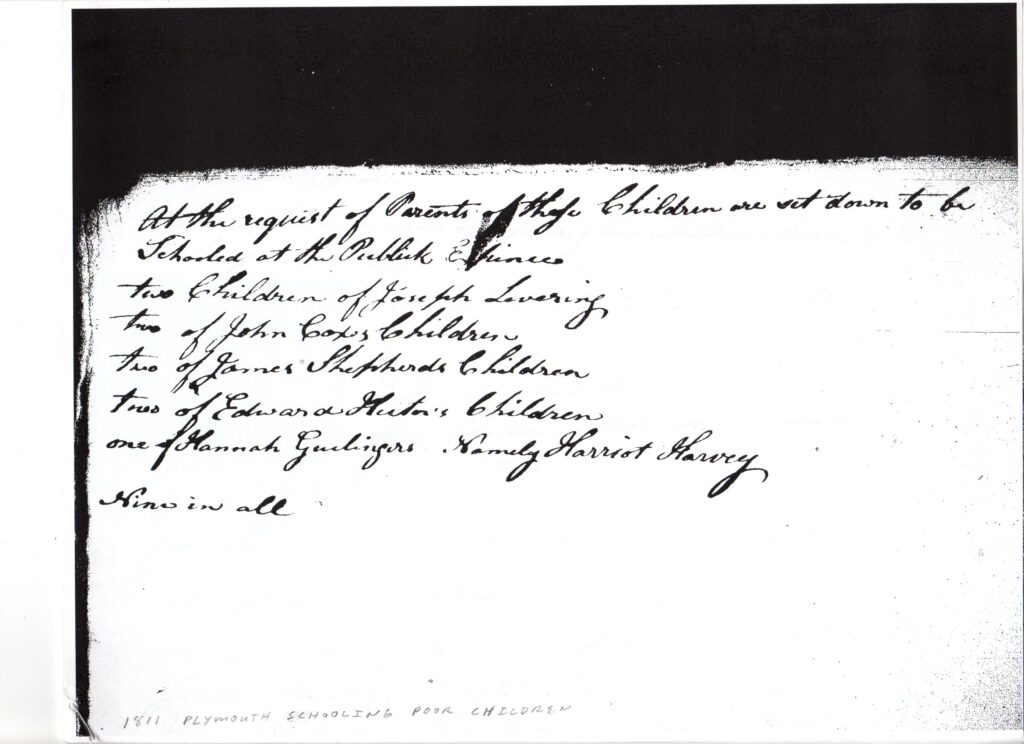 At the request of Parents of these Children are set down to be
Schooled at the Publick
two Children of Joseph Levering
two of John Cox's Children
two of James Shepherds Children
two of Edward Children
one of Hannah Namely Harriot Harvey
Nine in all
1811 PLYMOUTH SCHOOLING POOR CHILDREN